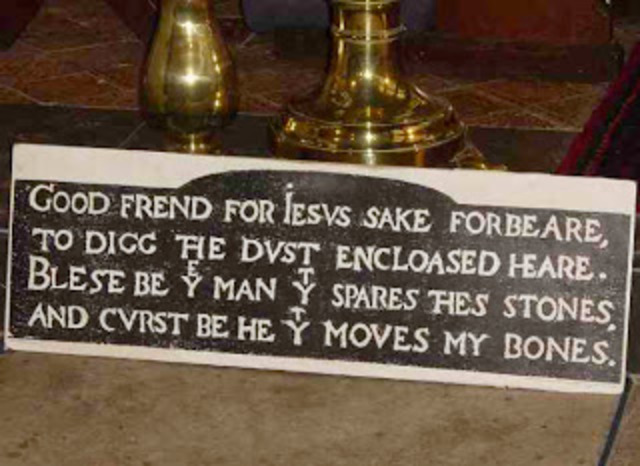 GOOD FREND FOR IESVS SAKE FORBEARE,
TO DIGG THE DVST ENCLOASED HEARE.
BLESE BE Yᴱ MAN Yᵀ SPARES THES STONES,
AND CVRST BE HE Yᵀ MOVES MY BONES.